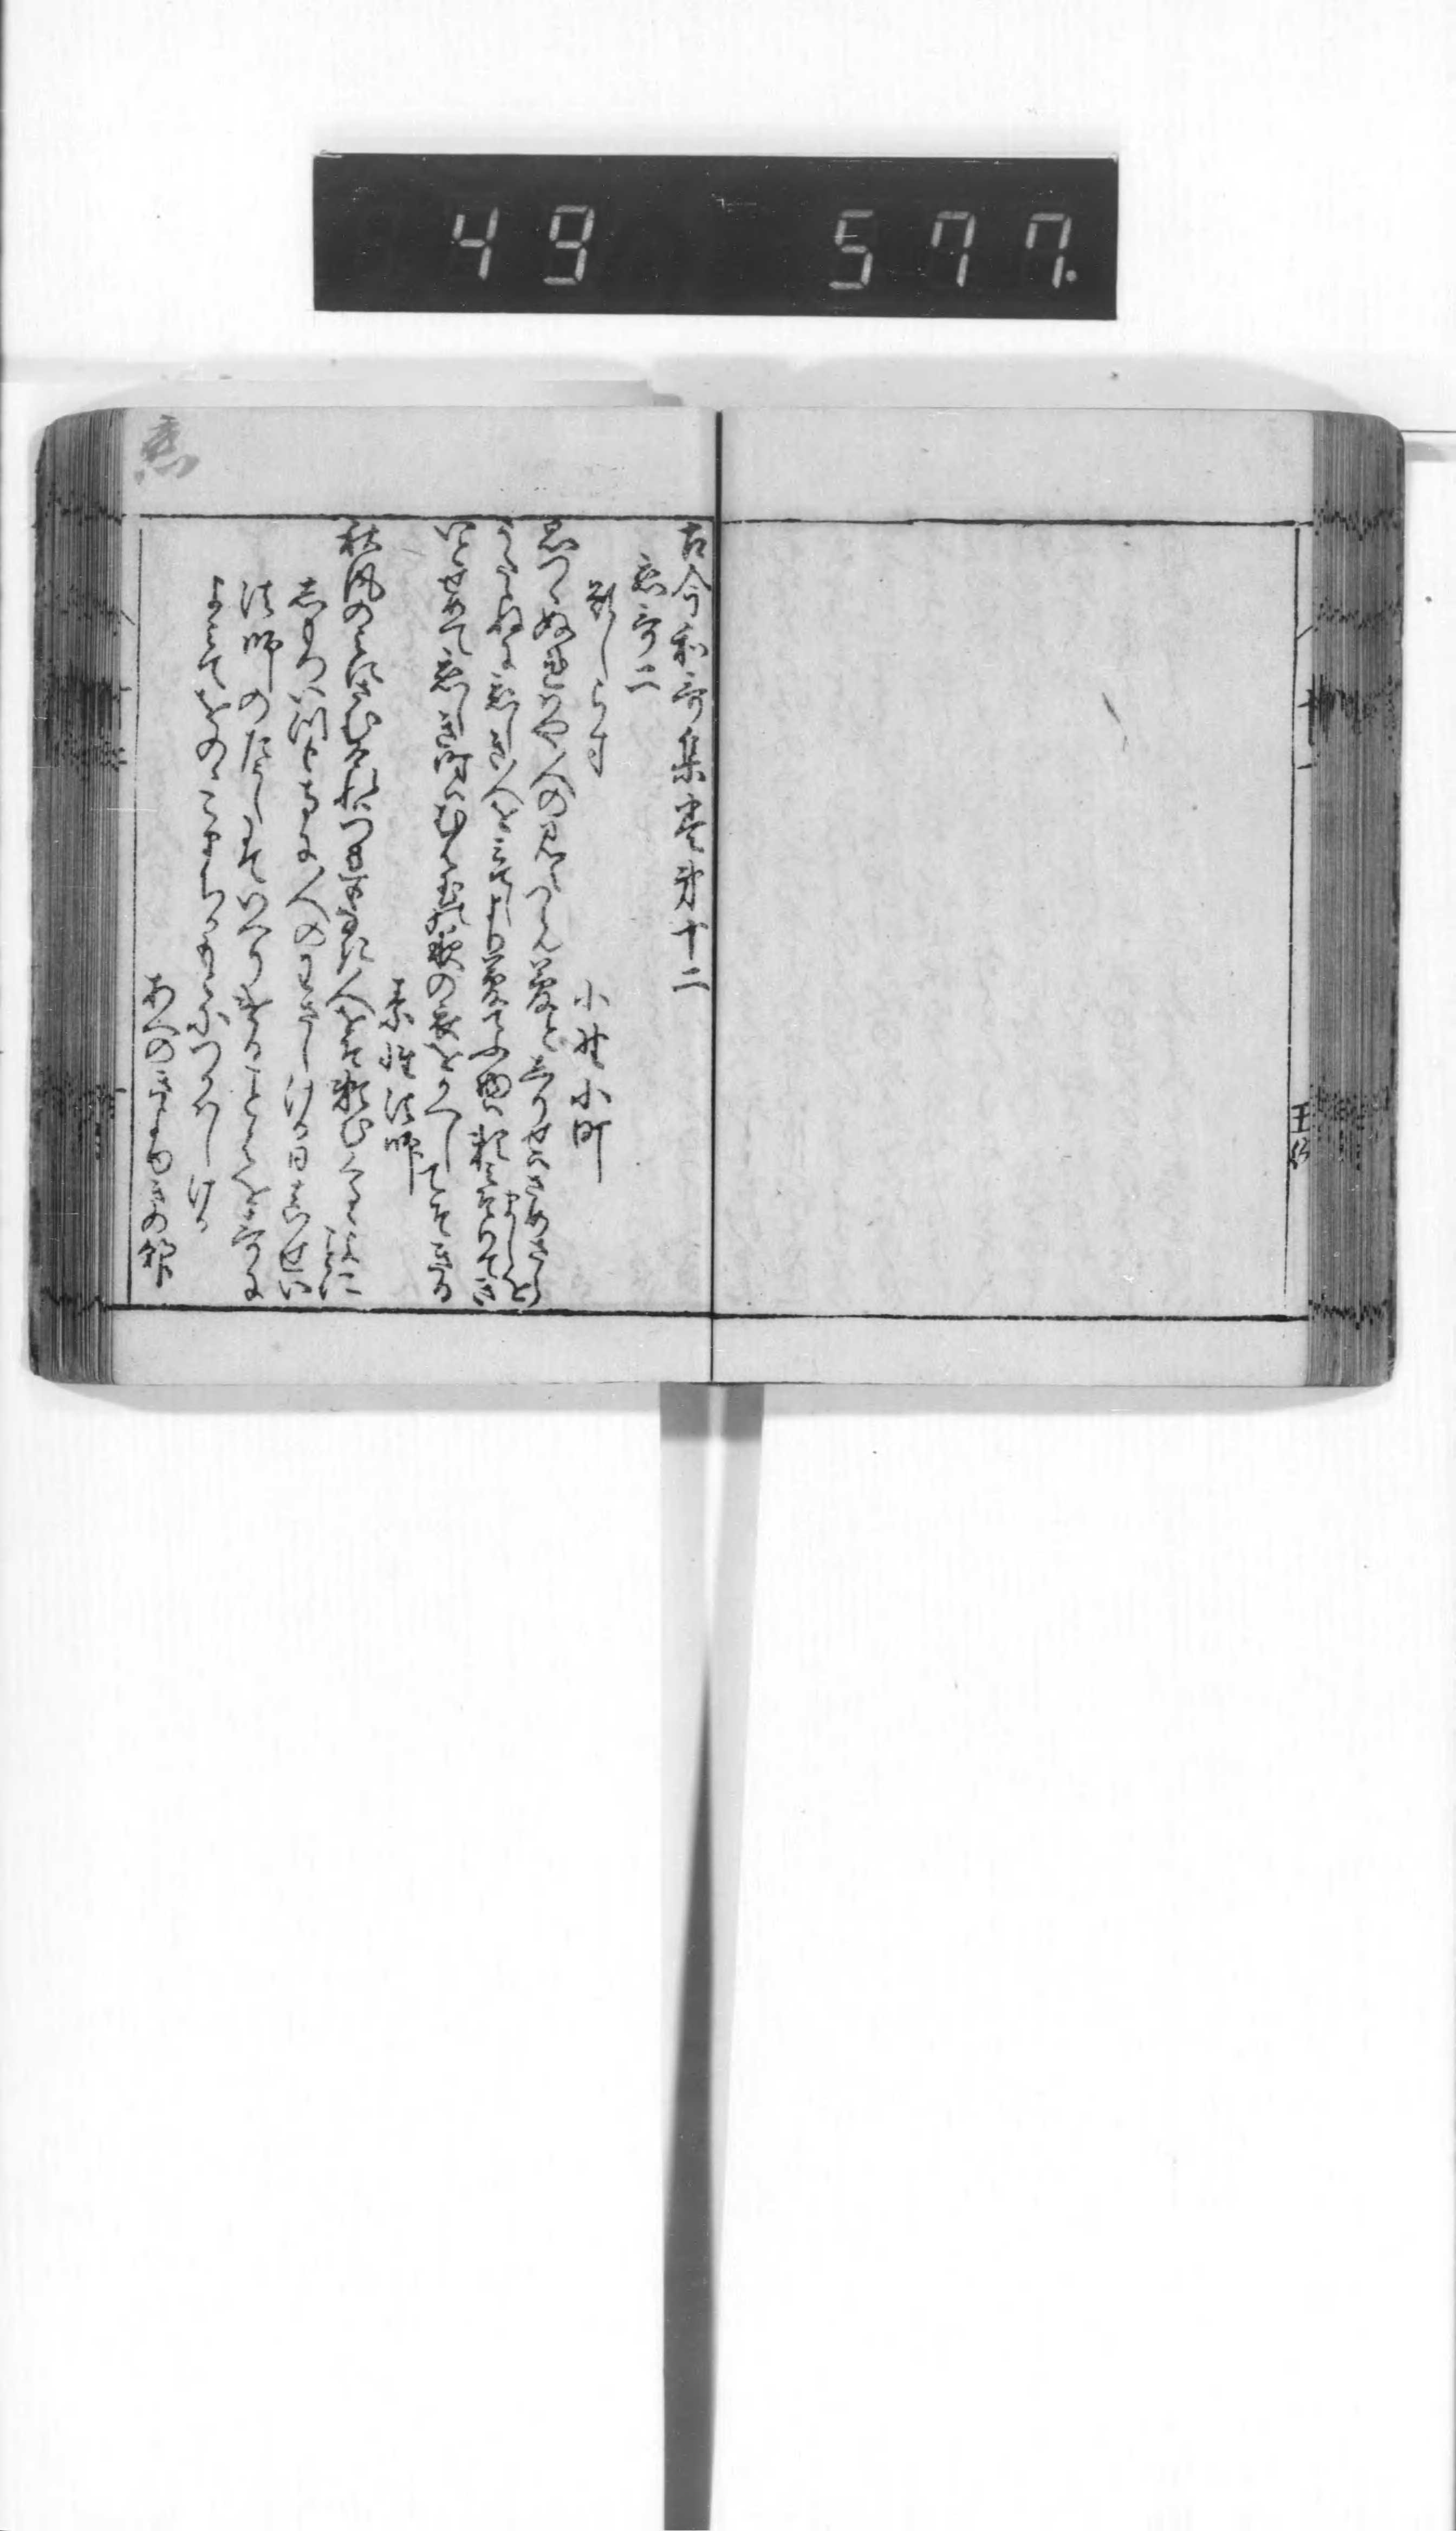 49 577.
古今和哥集巻第十二
恋哥二
題しらす
小野小町
思つゝぬれはや人の見えつらん夢としりせはさめさら
ましを
うたゝねに恋しき人を見てしより夢てふ物は頼そめてき
いとせめて恋しき時はむは玉の夜の衣をかへしてそきる
素性法師
秋風の身にさむけれはつれもなき人をそ頼むくるゝ夜
ことに
しもついつもてらに人のわさしける日真せい
法師のたうしにていへりけることを哥に
よみてをのゝこまちかもとにつかはしける
あへのきよゆきの朝臣
恋